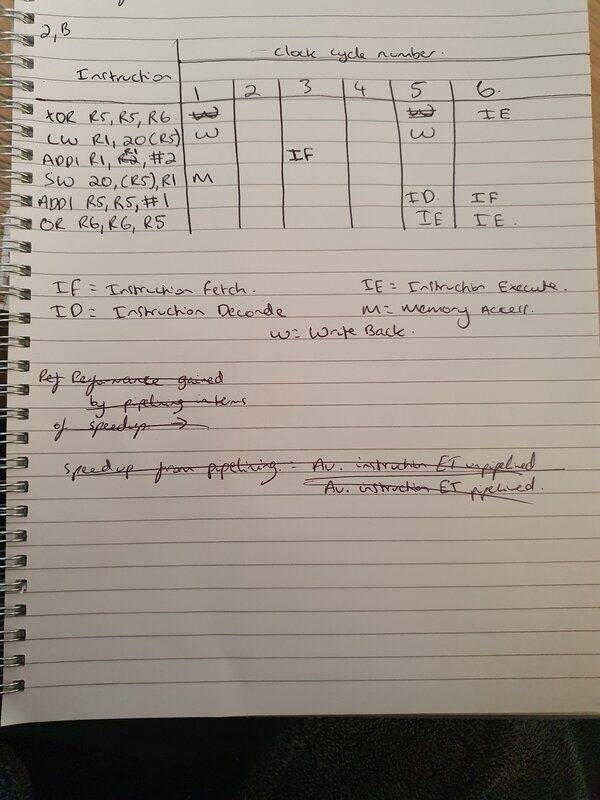 2, B
Clock cycle number.
Instruction 1 2 3 4 5 6.
XOR R5, R5, R6 W W IE
LW R1, 20(R5) W W
ADDI R1, R1, #2 IF
SW 20, (R5), R1 M
ADDI R5, R5, #1 ID IF
OR R6, R6, R5 IE IE.
IF = Instruction Fetch. IE = Instruction Execute.
ID = Instruction Deconde M = Memory Access.
W = Write Back.
Per Performance gained
by pipelining in terms
of speedup →
Speedup from pipelining. = Av. instruction ET unpipelined
Av. instruction ET pipelined.